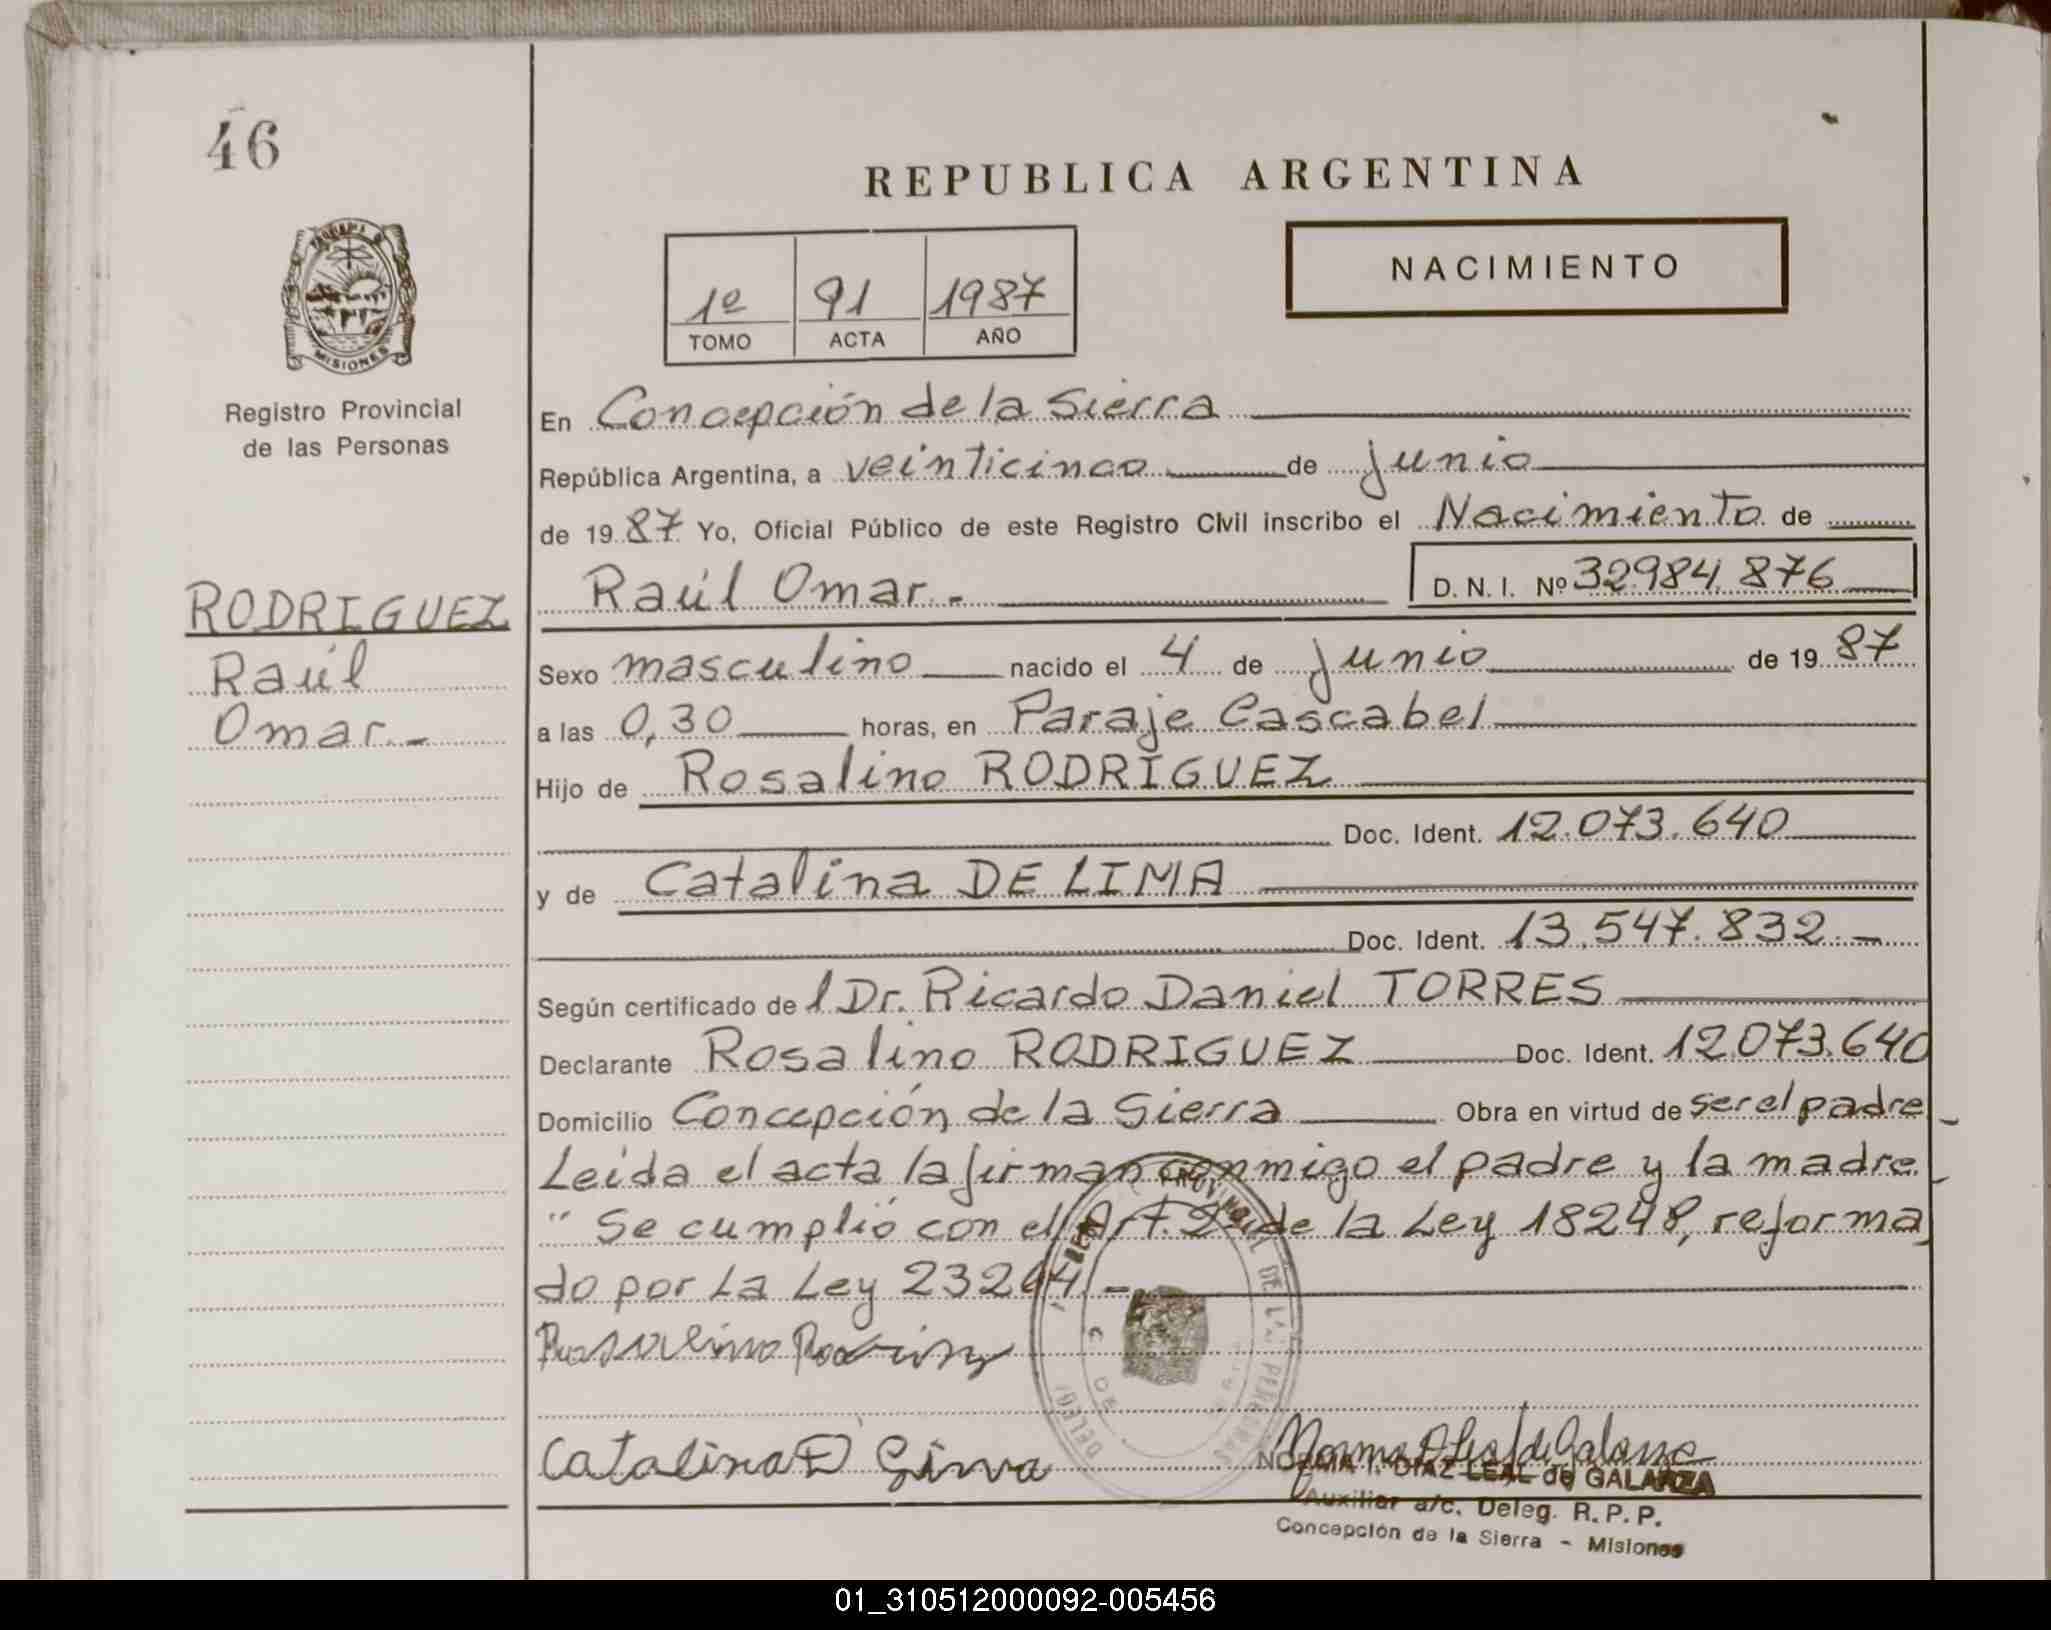 46
REPUBLICA ARGENTINA
NACIMIENTO
1º 91 1987
TOMO ACTA AÑO
MISIONES
Registro Provincial
de las Personas
RODRIGUEZ
Raúl
Omar.-
En Concepción de la Sierra
República Argentina, a veinticinco de junio
de 1987 Yo, Oficial Público de este Registro Civil inscribo el Nacimiento de
Raúl Omar.- D. N. I. Nº 32984.876
Sexo masculino nacido el 4 de junio de 1987
a las 0,30 horas, en Paraje Cascabel
Hijo de Rosalino RODRIGUEZ
Doc. Ident. 12.073.640
y de Catalina DE LIMA
Doc. Ident. 13.547.832.-
Según certificado del Dr. Ricardo Daniel TORRES
Declarante Rosalino RODRIGUEZ Doc. Ident. 12.073.640
Domicilio Concepción de la Sierra Obra en virtud de ser el padre-
Leída el acta la firman conmigo el padre y la madre.-
" Se cumplió con el Art. de la Ley 18248, reforma
do por La Ley 23264.-
Rosalino
Catalina D
NORMA I. DIAZ LEAL de GALARZA
Auxiliar a/c. Deleg. R. P. P.
Concepción de la Sierra - Misiones
01_310512000092-005456